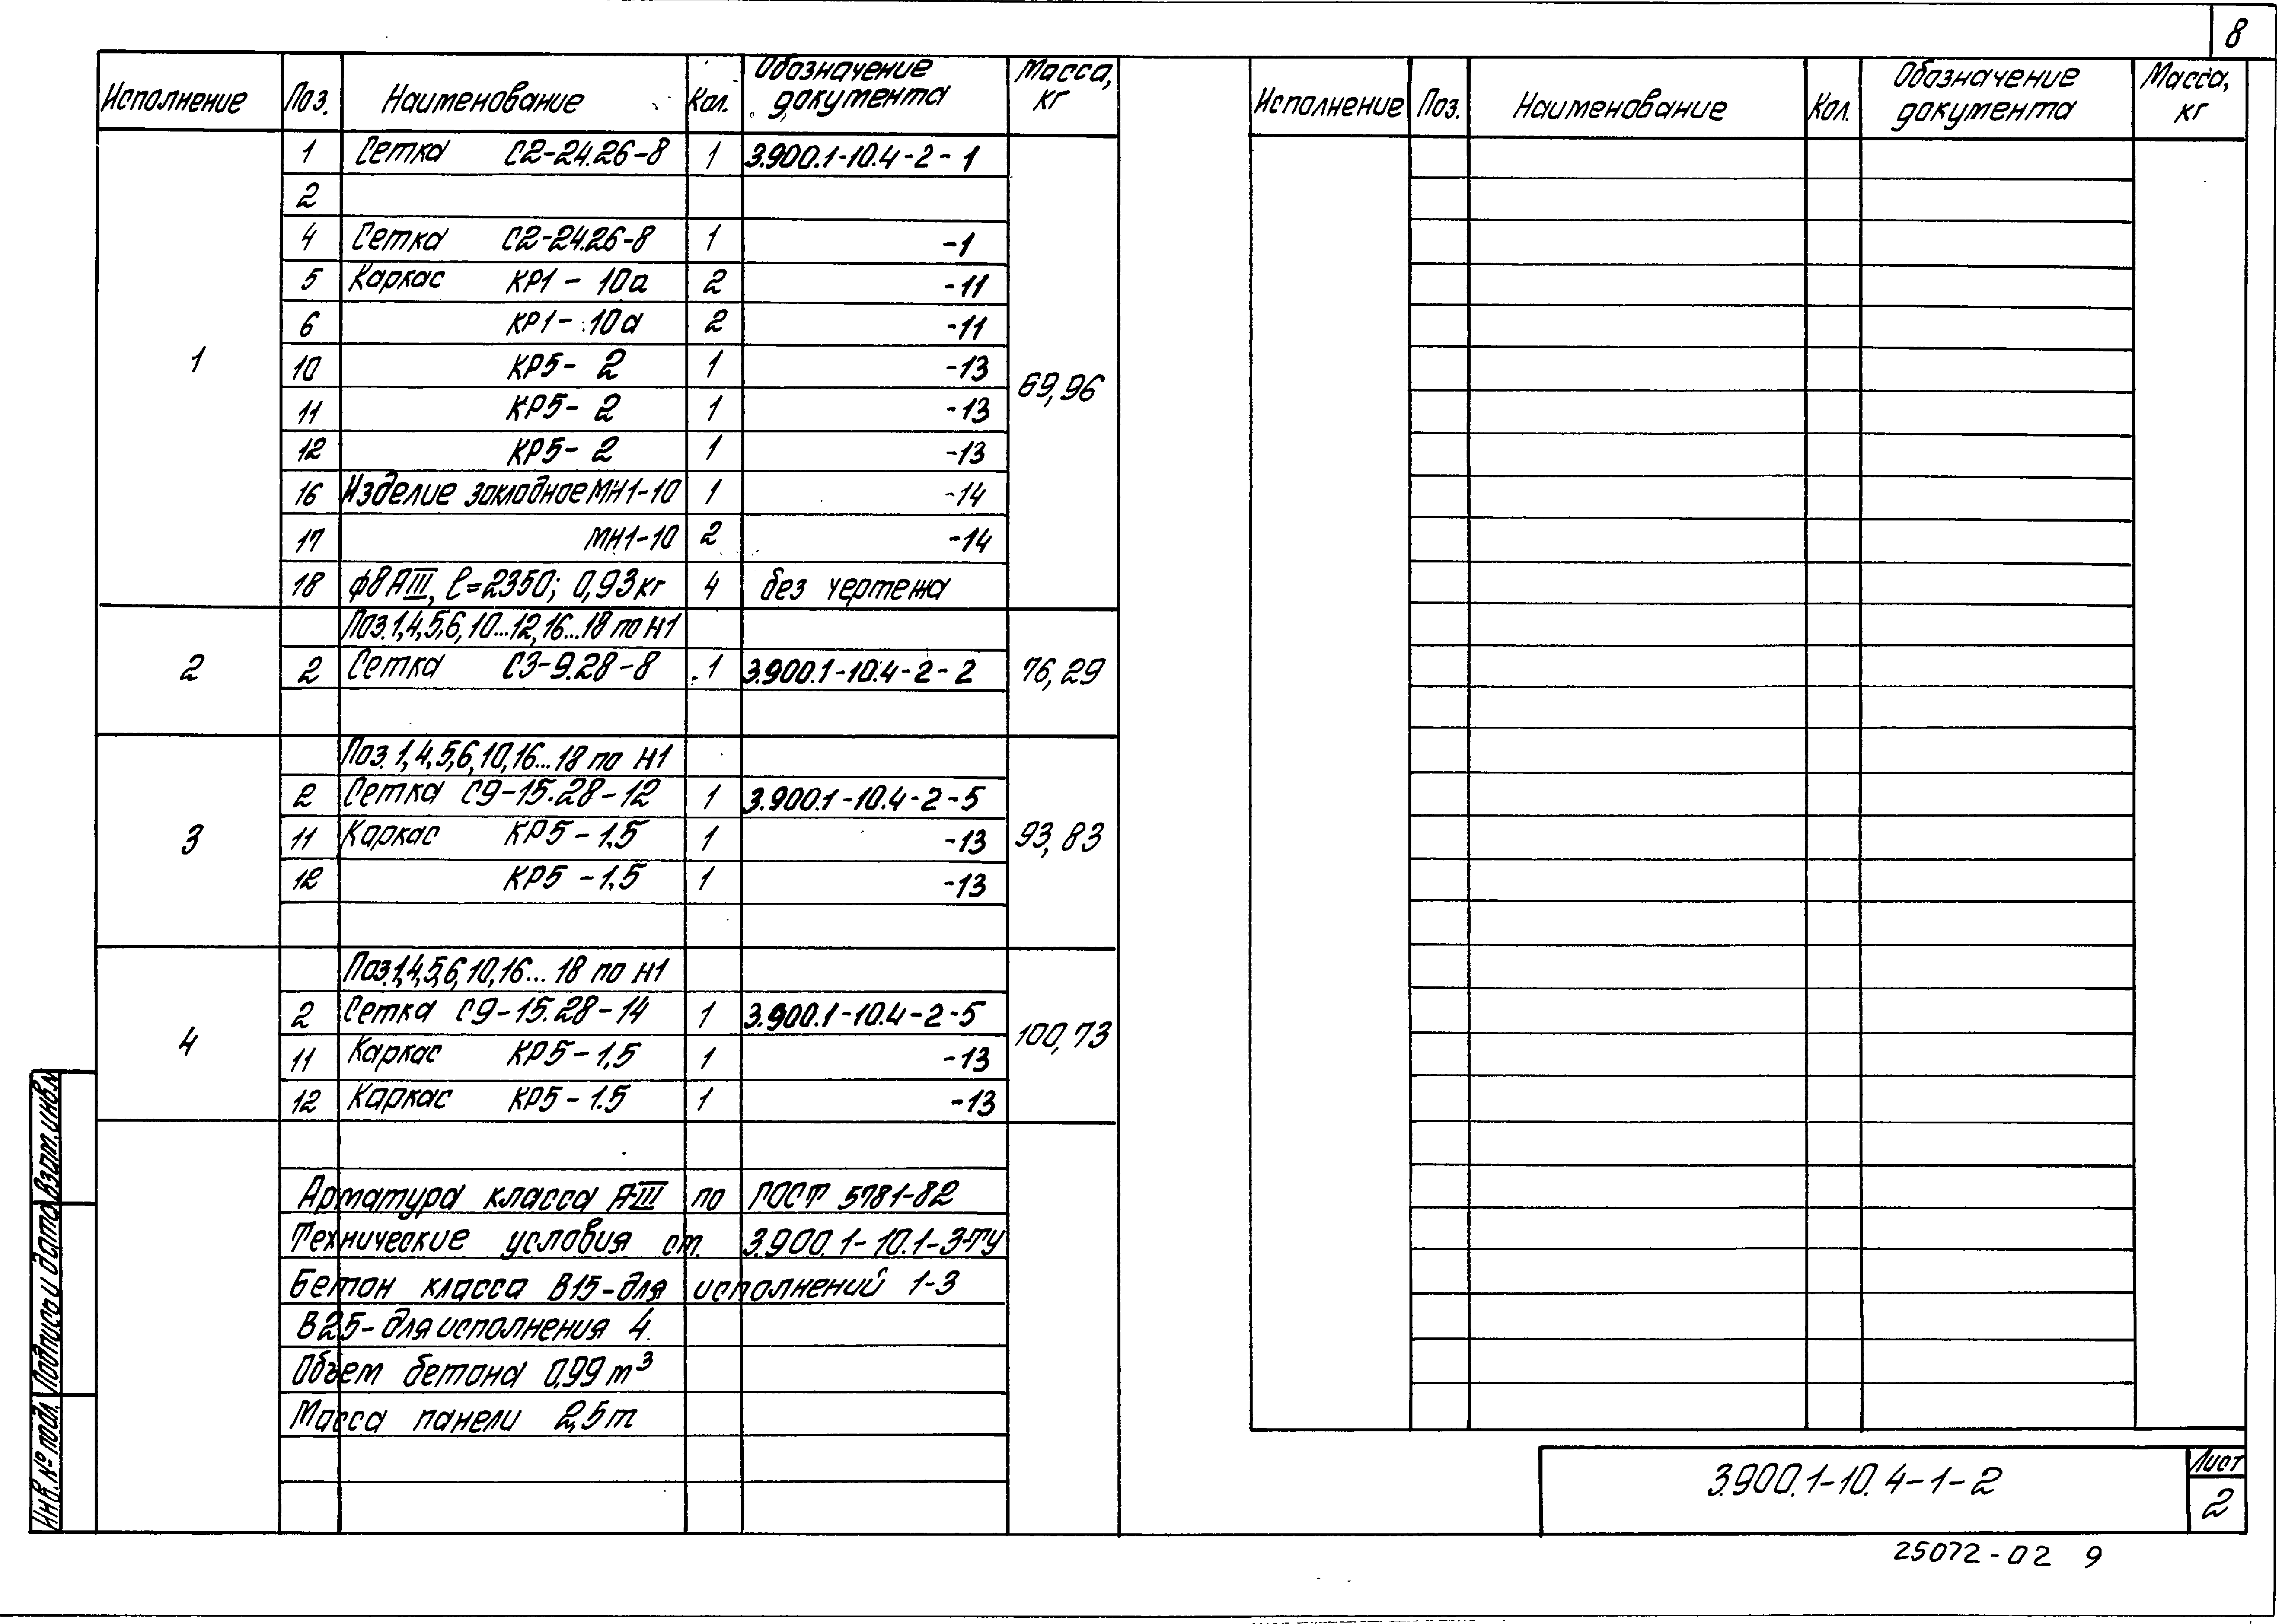 8
Исполнение Поз. Наименование Кол. Обозначение документа Масса, кг
1 69,96
1 Сетка С2-24.26-8 1 3.900.1-10.4-2-1
2
4 Сетка С2-24.26-8 1 -1
5 Каркас КР1-10а 2 -11
6 КР1-10а 2 -11
10 КР5-2 1 -13
11 КР5-2 1 -13
12 КР5-2 1 -13
16 Изделие закладное МН1-10 1 -14
17 МН1-10 2 -14
18 ф8АIII, ℓ=2350; 0,93кг 4 без чертежа
2 76,29
Поз.1,4,5,6,10...12,16...18 по Н1
2 Сетка С3-9.28-8 1 3.900.1-10.4-2-2
3 93,83
Поз.1,4,5,6,10,16...18 по Н1
2 Сетка С9-15.28-12 1 3.900.1-10.4-2-5
11 Каркас КР5-1.5 1 -13
12 КР5-1.5 1 -13
4 100,73
Поз.1,4,5,6,10,16...18 по Н1
2 Сетка С9-15.28-14 1 3.900.1-10.4-2-5
11 Каркас КР5-1,5 1 -13
12 Каркас КР5-1.5 1 -13
Арматура класса А-III по ГОСТ 5781-82
Технические условия см. 3.900.1-10.1-3-ТУ
Бетон класса В15-для исполнений 1-3
В25-для исполнения 4.
Объем бетона 0,99 м³
Масса панели 2,5т
Исполнение Поз. Наименование Кол. Обозначение документа Масса, кг
Инв.№ подл. Подпись и дата Взам.инв.№
3.900.1-10.4-1-2
Лист
2
25072-02 9